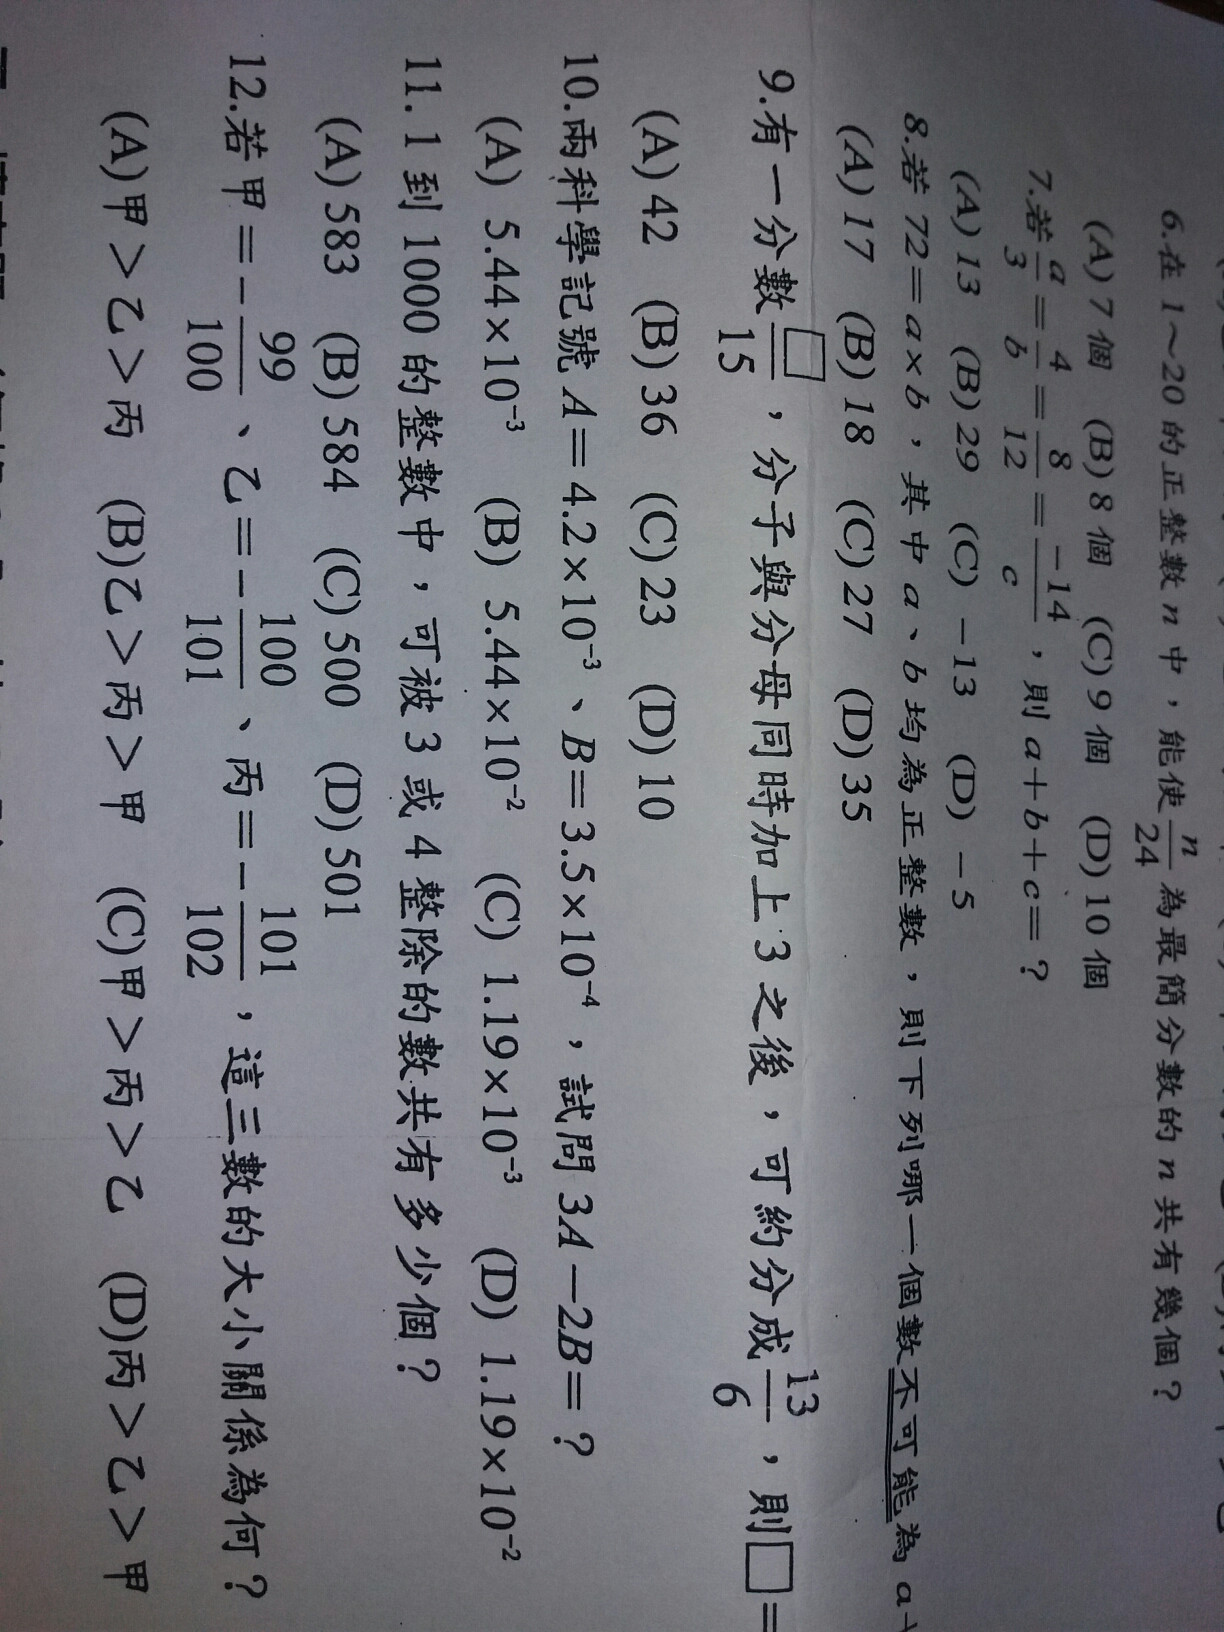 6.在 1～20 的正整數 n 中，能使 n/24 為最簡分數的 n 共有幾個？
(A) 7 個 (B) 8 個 (C) 9 個 (D) 10 個
7.若 a/3 = 4/b = 8/12 = -14/c，則 a＋b＋c＝？
(A) 13 (B) 29 (C) －13 (D) －5
8.若 72＝a×b，其中 a、b 均為正整數，則下列哪一個數不可能為 a＋
(A) 17 (B) 18 (C) 27 (D) 35
9.有一分數 □/15，分子與分母同時加上 3 之後，可約分成 13/6，則□＝
(A) 42 (B) 36 (C) 23 (D) 10
10.兩科學記號 A＝4.2×10⁻³、B＝3.5×10⁻⁴，試問 3A－2B＝？
(A) 5.44×10⁻³ (B) 5.44×10⁻² (C) 1.19×10⁻³ (D) 1.19×10⁻²
11. 1 到 1000 的整數中，可被 3 或 4 整除的數共有多少個？
(A) 583 (B) 584 (C) 500 (D) 501
12.若甲＝－99/100、乙＝－100/101、丙＝－101/102，這三數的大小關係為何？
(A)甲＞乙＞丙 (B)乙＞丙＞甲 (C)甲＞丙＞乙 (D)丙＞乙＞甲